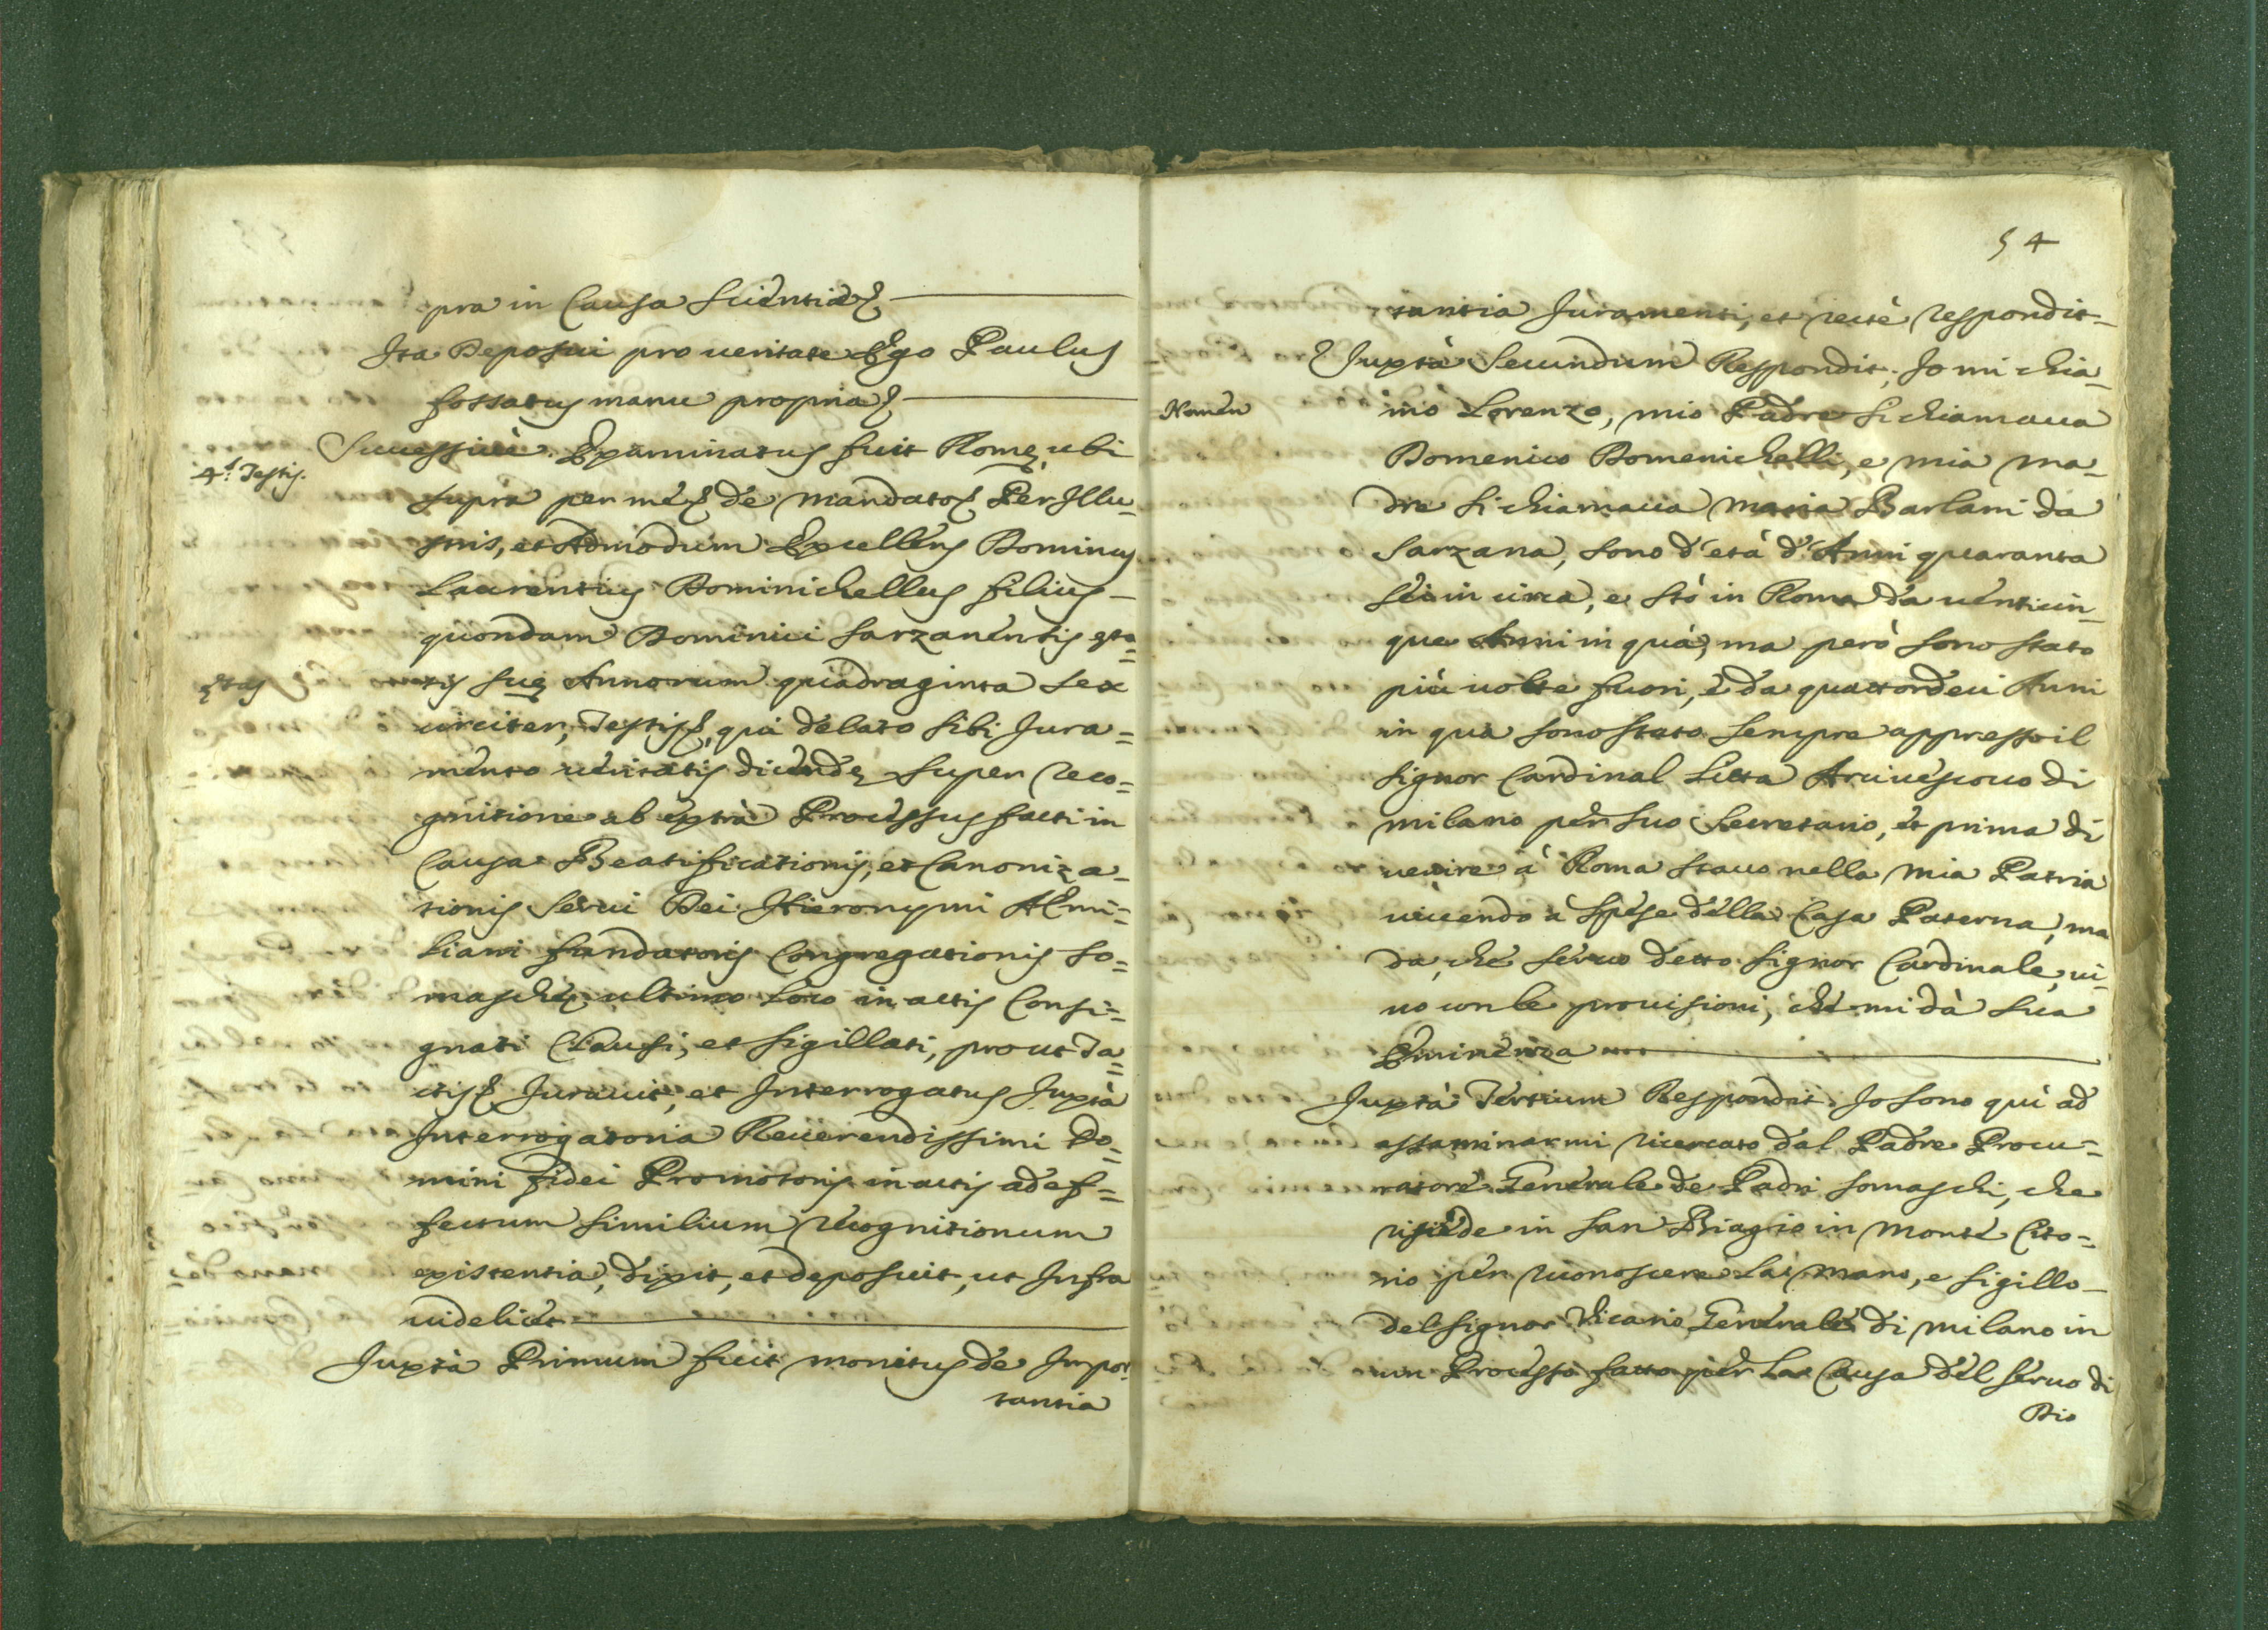 pra in Causa scientiae
Ita Deposui pro veritate Ego Paulus
fossatus manu propria
Successivè Examinatus fuit Romę ubi
4.s Testis.
supra per me de mandato Per Illu-
stris, et Admodum Excellens Dominus
Laurentius Dominichellus filius
quondam Dominici Sarzanensis ęta=
ętas
tis suę Annorum quadraginta sex
circiter, Testis, qui delato sibi Jura=
mento veritatis dicendę super reco=
gnitione ab extrà Processus facti in
Causa Beatificationis, et Canoniza-
tionis Servi Dei Hieronymi AEmi=
liani fundatoris Congregationis So=
maschę ultimo loco in actis Consi=
gnati Clausi, et sigillati, prout Ta=
ctis Juravit, et Interrogatus Juxtà
Interrogatoria Reverendissimi Do=
mini fidei Promotoris in actis ad ef=
fectum similium recognitionum
existentia, dixit, et deposuit, ut Infra
videlicet
Juxtà Primum fuit monitus de Impor=
tantia
54
tantia Juramenti, et rectè respondit
Juxtà Secundum Respondit. Io mi chia-
Nomen
mo Lorenzo, mio Padre si chiamava
Domenico Domenichelli, e mia ma-
dre si chiamava Maria Barlani da
Sarzana, sono d'età d'Anni quaranta
sei in circa, e stò in Roma da venticin-
que Anni in quà, ma però sono stato
più volte fuori, e da quattordeci Anni
in quà sono stato sempre appresso il
Signor Cardinal Litta Arcivescovo di
Milano per suo Secretario, et prima di
venire à Roma stavo nella mia Patria
vivendo à spese della Casa Paterna, ma
da, che servo detto Signor Cardinale, vi-
vo con le provisioni, che mi dà Sua
Eminenza
Juxtà Tertium Respondit. Io sono quì ad
essaminarmi ricercato dal Padre Procu=
ratore Generale de Padri Somaschi, che
risiede in San Biagio in Monte Cito=
rio per riconoscere la mano, e sigillo
del Signor Vicario Generale di Milano in
un Processo fatto per la Causa del Servo di
Dio